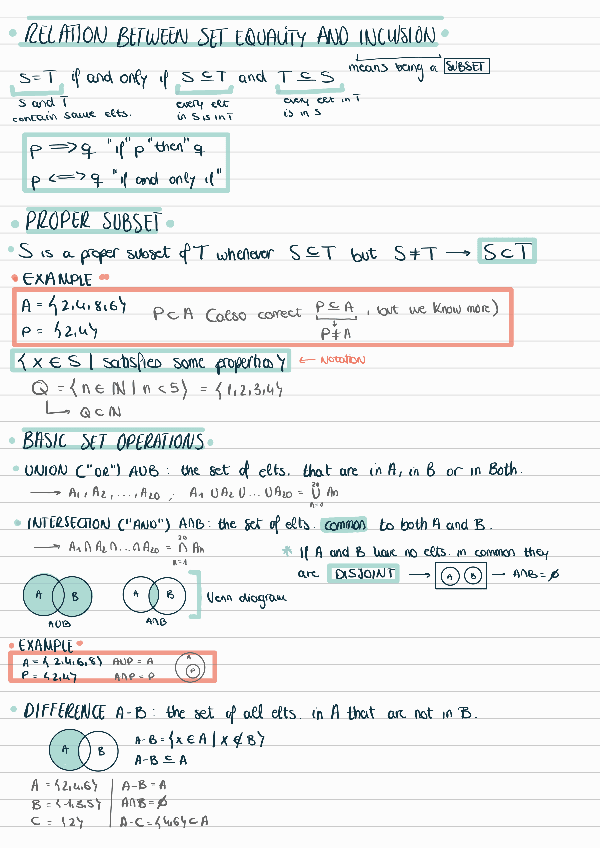 • RELATION BETWEEN SET EQUALITY AND INCLUSION •
means being a SUBSET
S=T if and only if S⊆T and T⊆S
S and T contain same elts.
every elt in S is in T
every elt in T is in S
p ⟹ q "if" p "then" q
p ⟺ q "if and only if"
• PROPER SUBSET •
• S is a proper subset of T whenever S⊆T but S≠T → S⊂T
• EXAMPLE •
A = {2,4,8,6}
P = {2,4}
P⊂A (also correct P⊆A, but we know more)
P≠A
{x ∈ S | satisfies some property} ← NOTATION
Q = {n ∈ ℕ | n < 5} = {1,2,3,4}
↳ Q⊂ℕ
• BASIC SET OPERATIONS •
• UNION ("OR") A∪B : the set of elts. that are in A, in B or in Both.
→ A₁, A₂, ..., A₂₀ ; A₁ ∪ A₂ ∪ ... ∪ A₂₀ = ∪ An
• INTERSECTION ("AND") A∩B : the set of elts. common to both A and B.
→ A₁ ∩ A₂ ∩ ... ∩ A₂₀ = ²⁰∩ₙ₌₁ An
* If A and B have no elts. in common they
are DISJOINT → A B → A∩B = ∅
A B
A∪B
A B
A∩B
Venn diagram
• EXAMPLE •
A = {2,4,6,8} A∪P = A
P = {2,4} A∩P = P
A
P
• DIFFERENCE A-B : the set of all elts. in A that are not in B.
A B
A-B = {x ∈ A | x ∉ B}
A-B ⊆ A
A = {2,4,6} A-B = A
B = {1,3,5} A∩B = ∅
C = {2} A-C = {4,6} ⊂ A